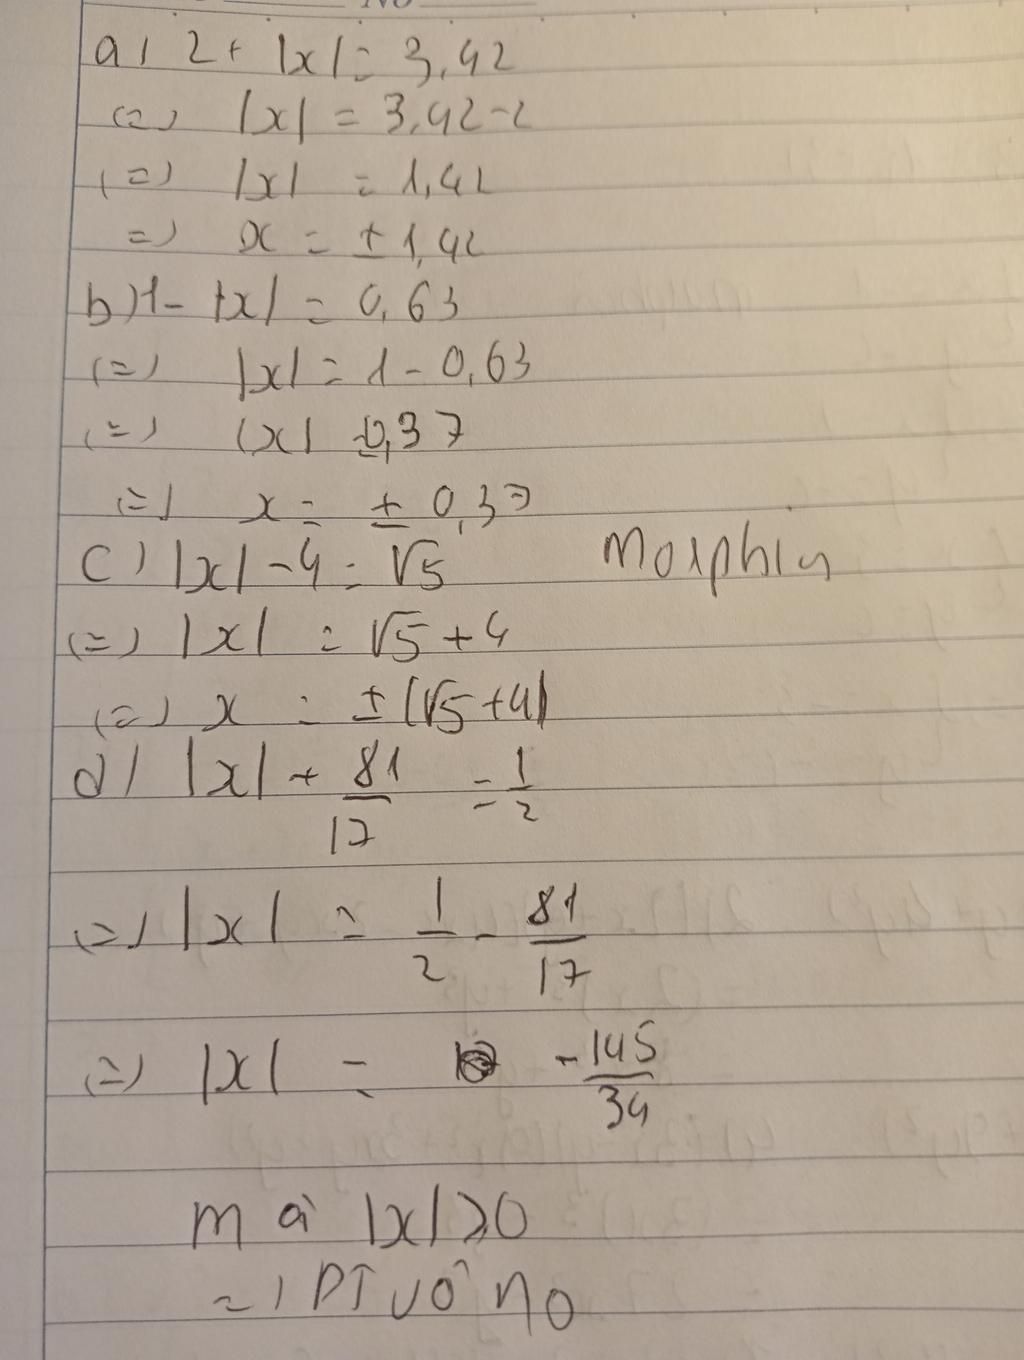 a) 2 + |x| = 3,42
(=) |x| = 3,42 - 2
(=) |x| = 1,42
=) x = ± 1,42
b) 1 - |x| = 0,63
(=) |x| = 1 - 0,63
(=) |x| = 0,37
(=) x = ± 0,37
c) |x| - 4 = √5 Morphin
(=) |x| = √5 + 4
(=) x = ± (√5 + 4)
d) |x| + 81/17 = 1/2
(=) |x| = 1/2 - 81/17
(=) |x| = -145/34
mà |x| ⩾ 0
=) PT vô no